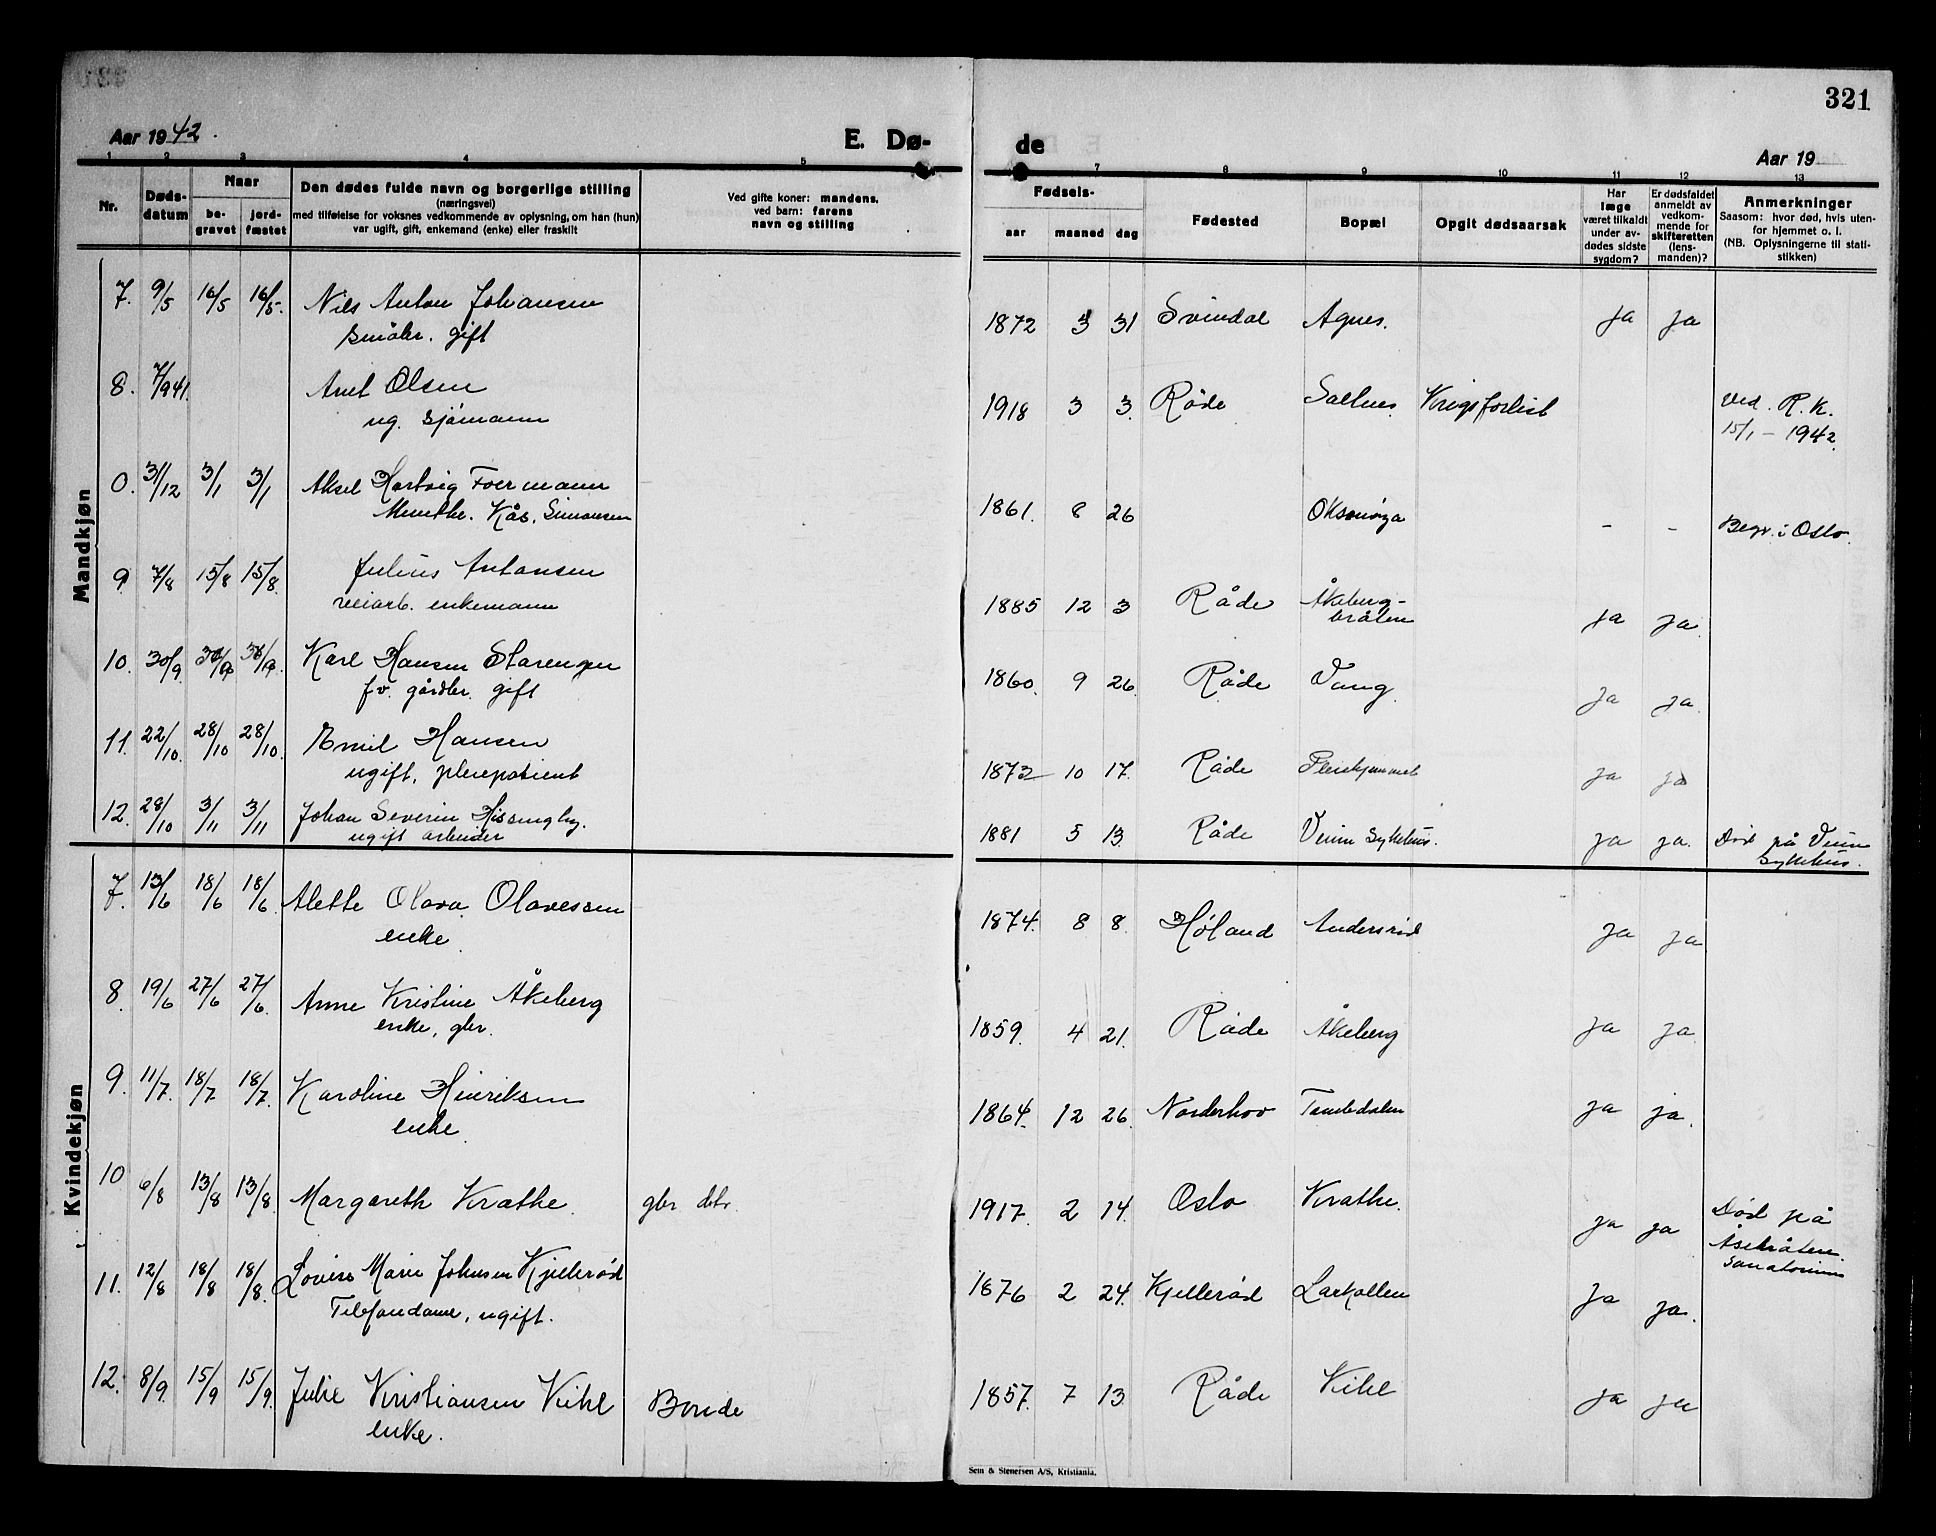 321
Aar 1942.
E. Dø-
de
Aar 19
1 2 3 4 5 7 8 9 10 11 12 13
Nr.
Døds-
datum
Naar
be-
gravet
jord-
fæstet
Den dødes fulde navn og borgerlige stilling
(næringsvei)
med tilføielse for voksnes vedkommende av oplysning, om han (hun)
var ugift, gift, enkemand (enke) eller fraskilt
Ved gifte koner: mandens,
ved barn: farens
navn og stilling
Fødsels-
aar maaned dag
Fødested
Bopæl
Opgit dødsaarsak
Har
læge
været tilkaldt
under av-
dødes sidste
sygdom?
Er dødsfaldet
anmeldt av
vedkom-
mende for
skifteretten
(lens-
manden)?
Anmerkninger
Saasom: hvor død, hvis uten-
for hjemmet o. l.
(NB. Oplysningerne til stati-
stikken)
Mandkjøn
7. 9/5 16/5 16/5. Nils Anton Johansen
småbr. gift
1872 3 31 Svindal Agnes. ja ja
8. 7/9 41. Arnt Olsen
ug. sjömann
1918 3 3. Råde Saltnes. Krigsforlist
Ved. R. K.
15/1 - 1942.
0. 31/12 3/1 3/1 Aksel Hartvig Foermann
Munthe. Kås. Simonsen
1861. 8 26 Oksenöya - - Begr. i Oslo.
9 7/8 15/8 15/8. Julius Antonsen
veiarb. enkemann
1885 12 3 Råde Åkeberg-
bråten ja ja.
10. 30/9. 30/9 30/9. Karl Hansen Starengen
fv. gårdbr. gift
1860. 9 26. Råde Vang. ja ja.
11. 22/10. 28/10 28/10. Emil Hansen
ugift, pleiepatient
1872 10 17. Råde Pleiehjemmet ja ja
12. 28/10 3/11 3/11 Johan Severin Hissingby.
ugift arbeider
1881 5 13. Råde Veum Sykehus. ja ja. Död på Veum
Sykehus.
Kvindekjøn
7. 13/6 18/6 18/6. Alette Olava Olavessen
enke.
1874. 8 8. Høland Andersrød ja ja
8. 19/6 27/6 27/6. Anne Kristine Åkeberg
enke, gbr.
1859. 4 21. Råde Åkeberg ja ja
9. 11/7. 18/7 18/7. Karoline Hinriksen
enke.
1864. 12 26. Norderhov Tombdalen ja ja.
10 6/8 13/8 13/8. Margareth Krathe. gbr dtr.
1917. 2 14. Oslo Krathe. ja ja Död på
Åsebråten.
Sanatorium
11. 12/8 18/8 18/8. Lovise Marie Johnsen Kjellerød
Telefondame, ugift.
1876 2 24. Kjellerød Larkollen ja ja.
12. 8/9. 15/9 15/9. Julie Kristiansen Kihl
enke.
Bonde
1857. 7 13 Råde Kihl ja ja
Sem & Stenersen A/S, Kristiania.